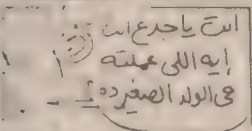 انت يا جدع انت
إيه اللى عملته
فى الولد الصغير ده؟